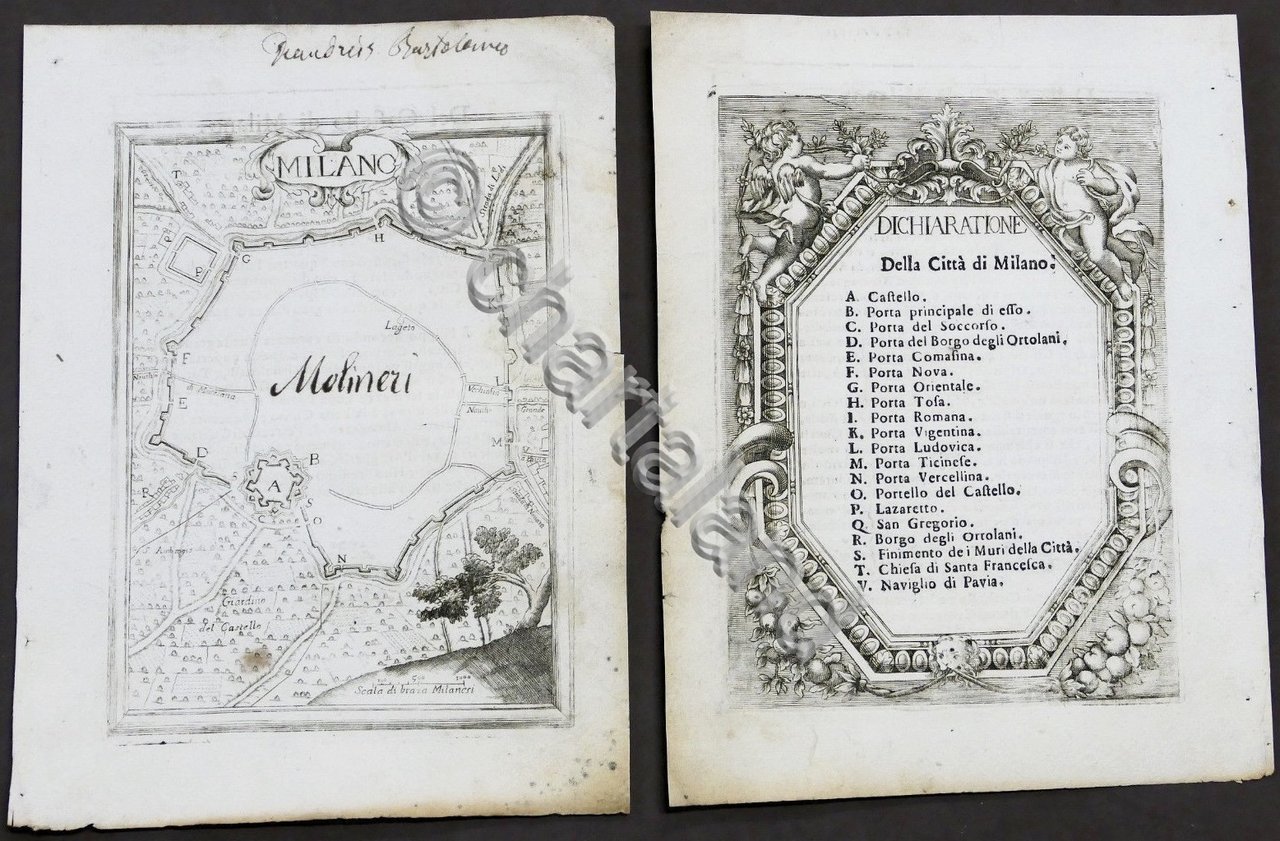 Bartolomeo
MILANO
T
Strada di Lodi
H
Q
P
G
I
Lageto
F
Molineri
di Martesana
L
Vechiabia
Navilio
Grande
E
M
D
B
A
R
S
C
O
S. Ambrogio ad N
N
Giardino
del Castello
500
1000
Scala di braza Milanesi
DICHIARATIONE
Della Città di Milano.
A. Caſtello.
B. Porta principale di eſſo.
C. Porta del Soccorſo.
D. Porta del Borgo degli Ortolani.
E. Porta Comaſina.
F. Porta Nova.
G. Porta Orientale.
H. Porta Toſa.
I. Porta Romana.
K. Porta Vigentina.
L. Porta Ludovica.
M. Porta Ticineſe.
N. Porta Vercellina.
O. Portello del Caſtello.
P. Lazaretto.
Q. San Gregorio.
R. Borgo degli Ortolani.
S. Finimento de i Muri della Città.
T. Chieſa di Santa Franceſca.
V. Naviglio di Pavia.
© Chartaland